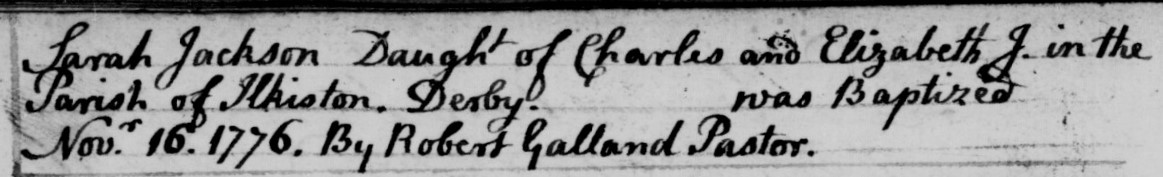 Sarah Jackson Daught of Charles and Elizabeth J. in the
Parish of Ilkiston. Derby. was Baptized
Nov.r 16. 1776. By Robert Galland Pastor.